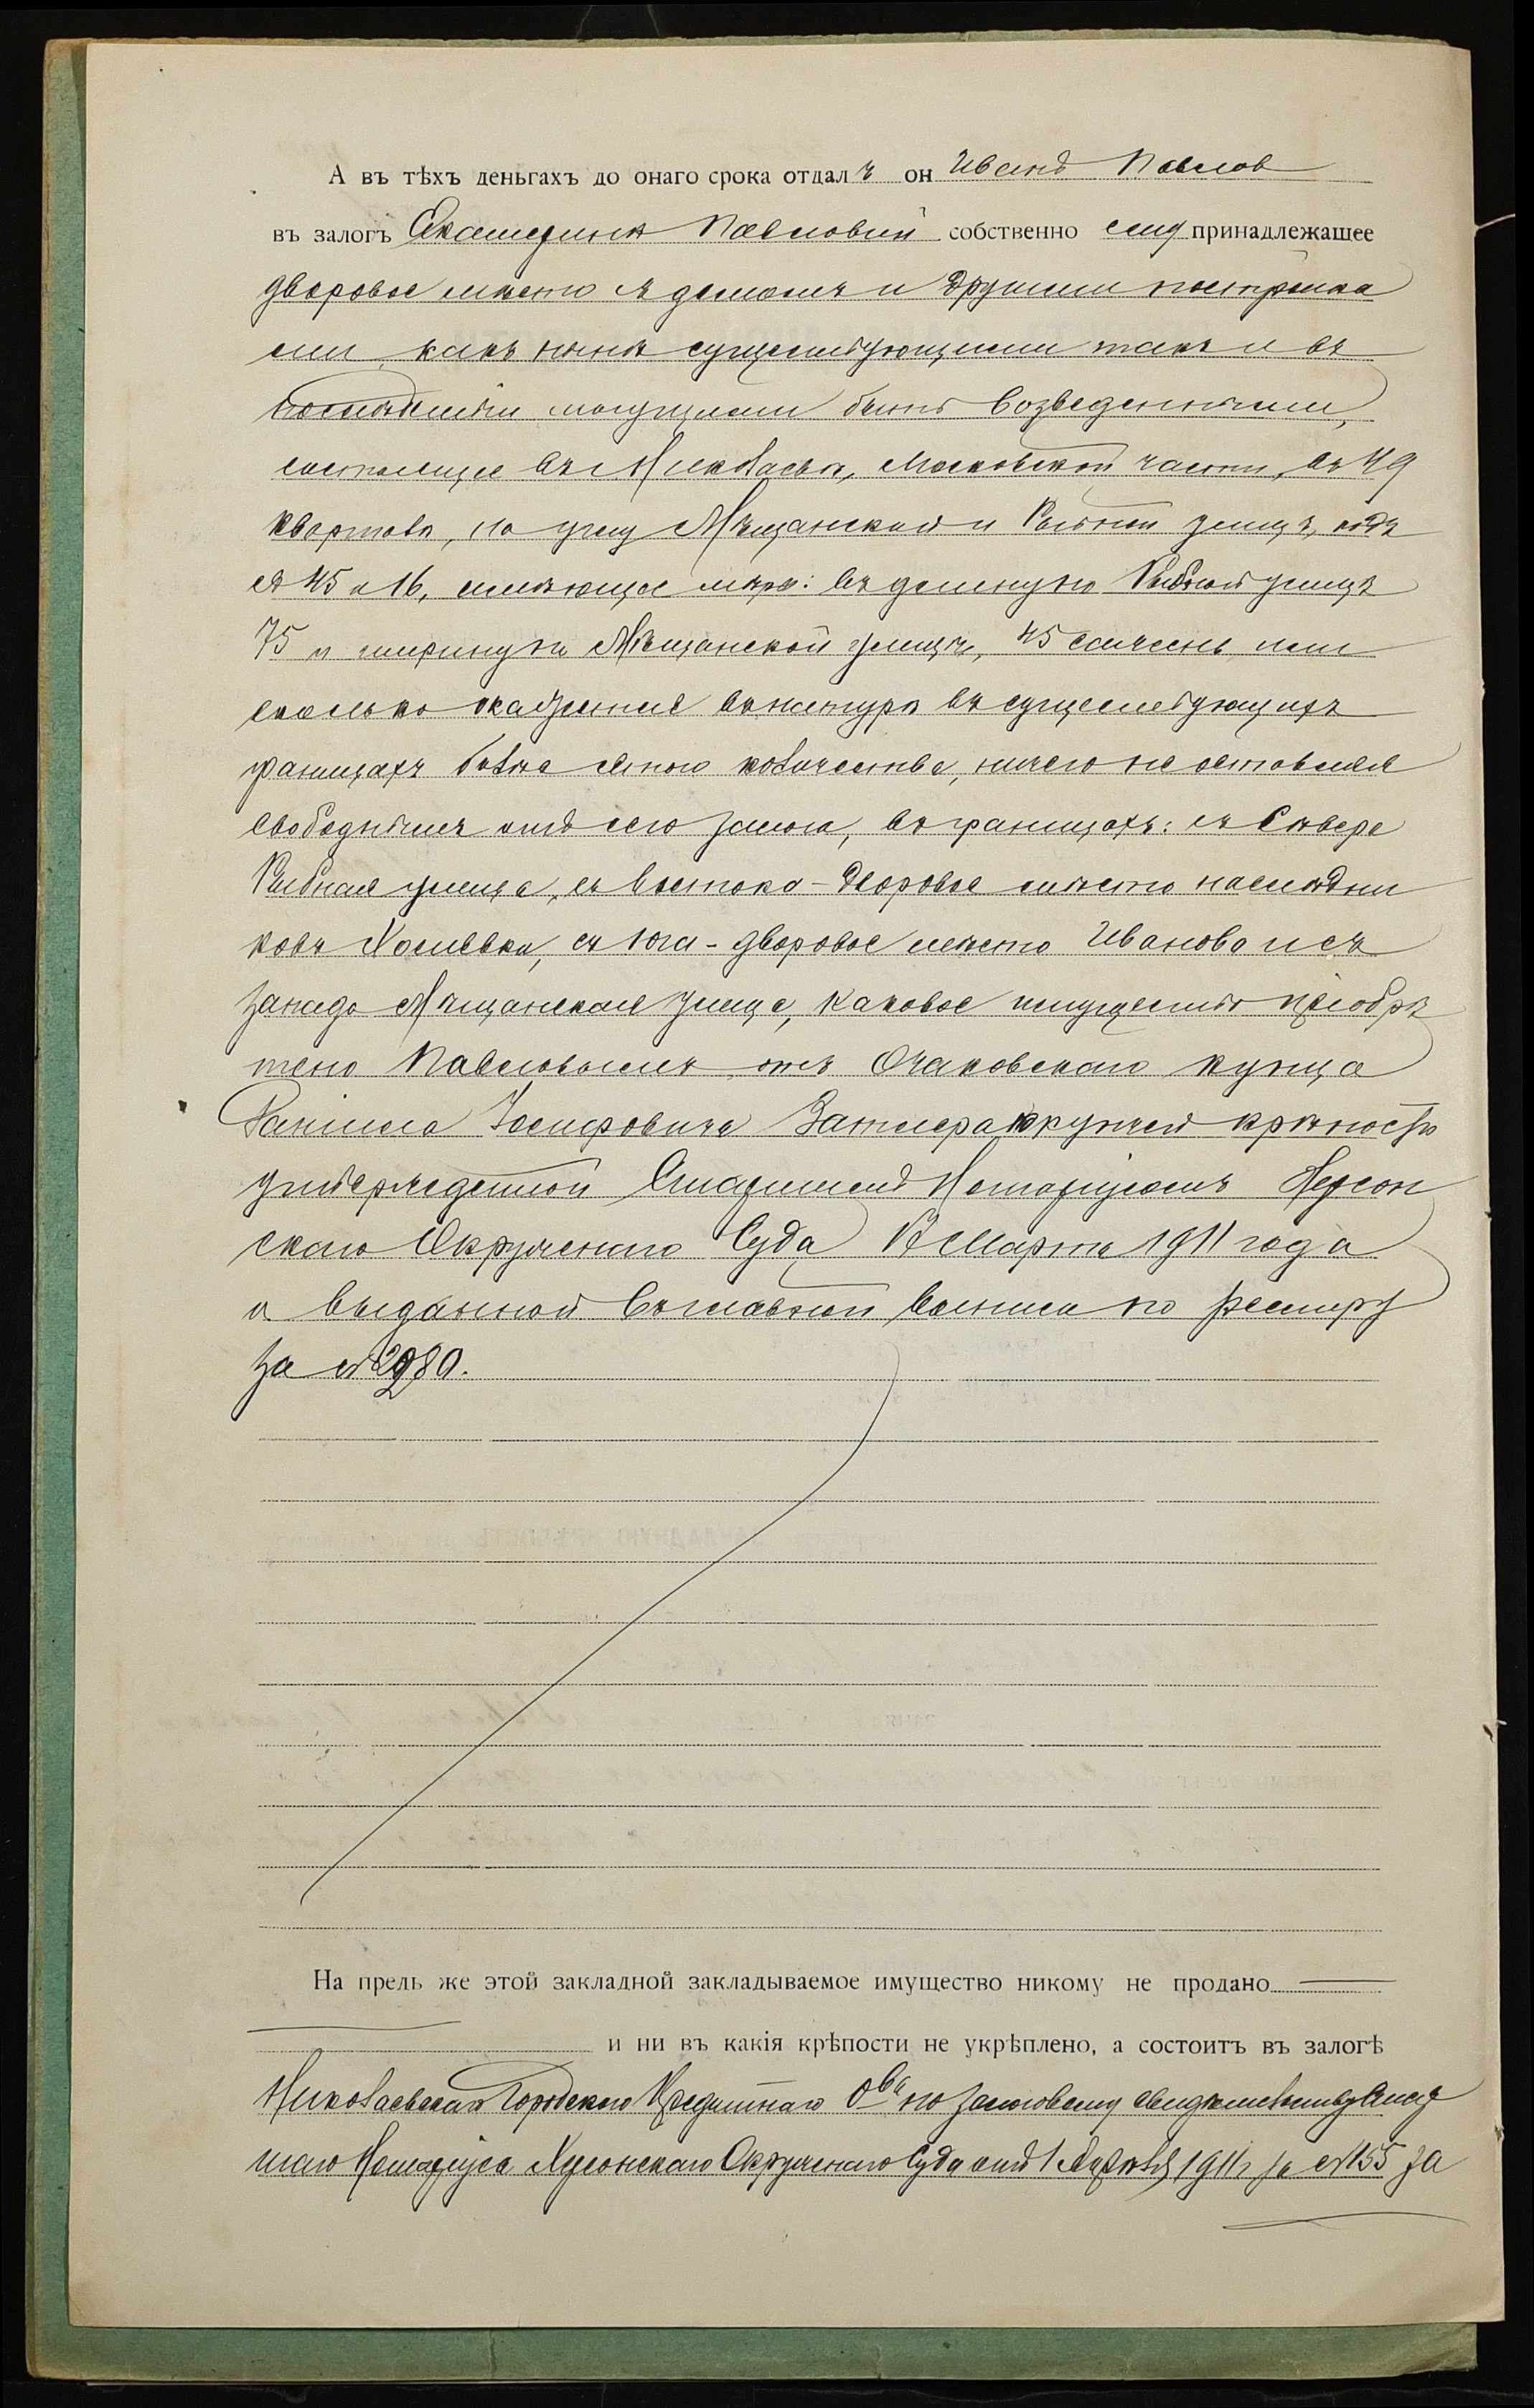 А въ тѣхъ деньгахъ до онаго срока отдалъ он Иванъ Павлов
въ залогъ Екатеринѣ Павловой собственно ему принадлежащее
дворовое мѣсто съ домомъ и другими постройка
ми, какъ нынѣ существующими такъ и въ
послѣдствіи могущими быть возведенными,
состоящее въ г. Николаевѣ, Московской части, въ 49
квартале, на углу Мѣщанской и Рыбной улицъ, подъ
№ 45 и 16, имѣющее мѣры: въ длину по Рыбной улицѣ
75 и ширину по Мѣщанской улицѣ, 45 сажень или
сколько окажется въ натурѣ въ существующихъ
границахъ болѣе сего количества, ничего не оставляя
свободнымъ отъ сего залога, въ границахъ: съ Сѣвера
Рыбная улица, съ Востока - дворовое мѣсто наслѣдни
ковъ, съ Юга - дворовое мѣсто Иванова и съ
запада Мѣщанская улица, каковое имущество пріобрѣ
тено Павловымъ отъ Очаковскаго купца
Іосифовича купчей крѣпостью
утвержденной Старшимъ Нотаріусомъ Херсон
скаго Окружнаго Суда Марта 1911 года
и выданной выписи по реестру
за № 2980.
На предь же этой закладной закладываемое имущество никому не продано
и ни въ какія крѣпости не укрѣплено, а состоитъ въ залогѣ
Николаевскаго Городского Кредитнаго О-ва по залоговому свидѣтельству Стар
шаго Нотаріуса Херсонскаго Окружнаго Суда отъ 1 Апрѣля 1911 г. за № 155 за